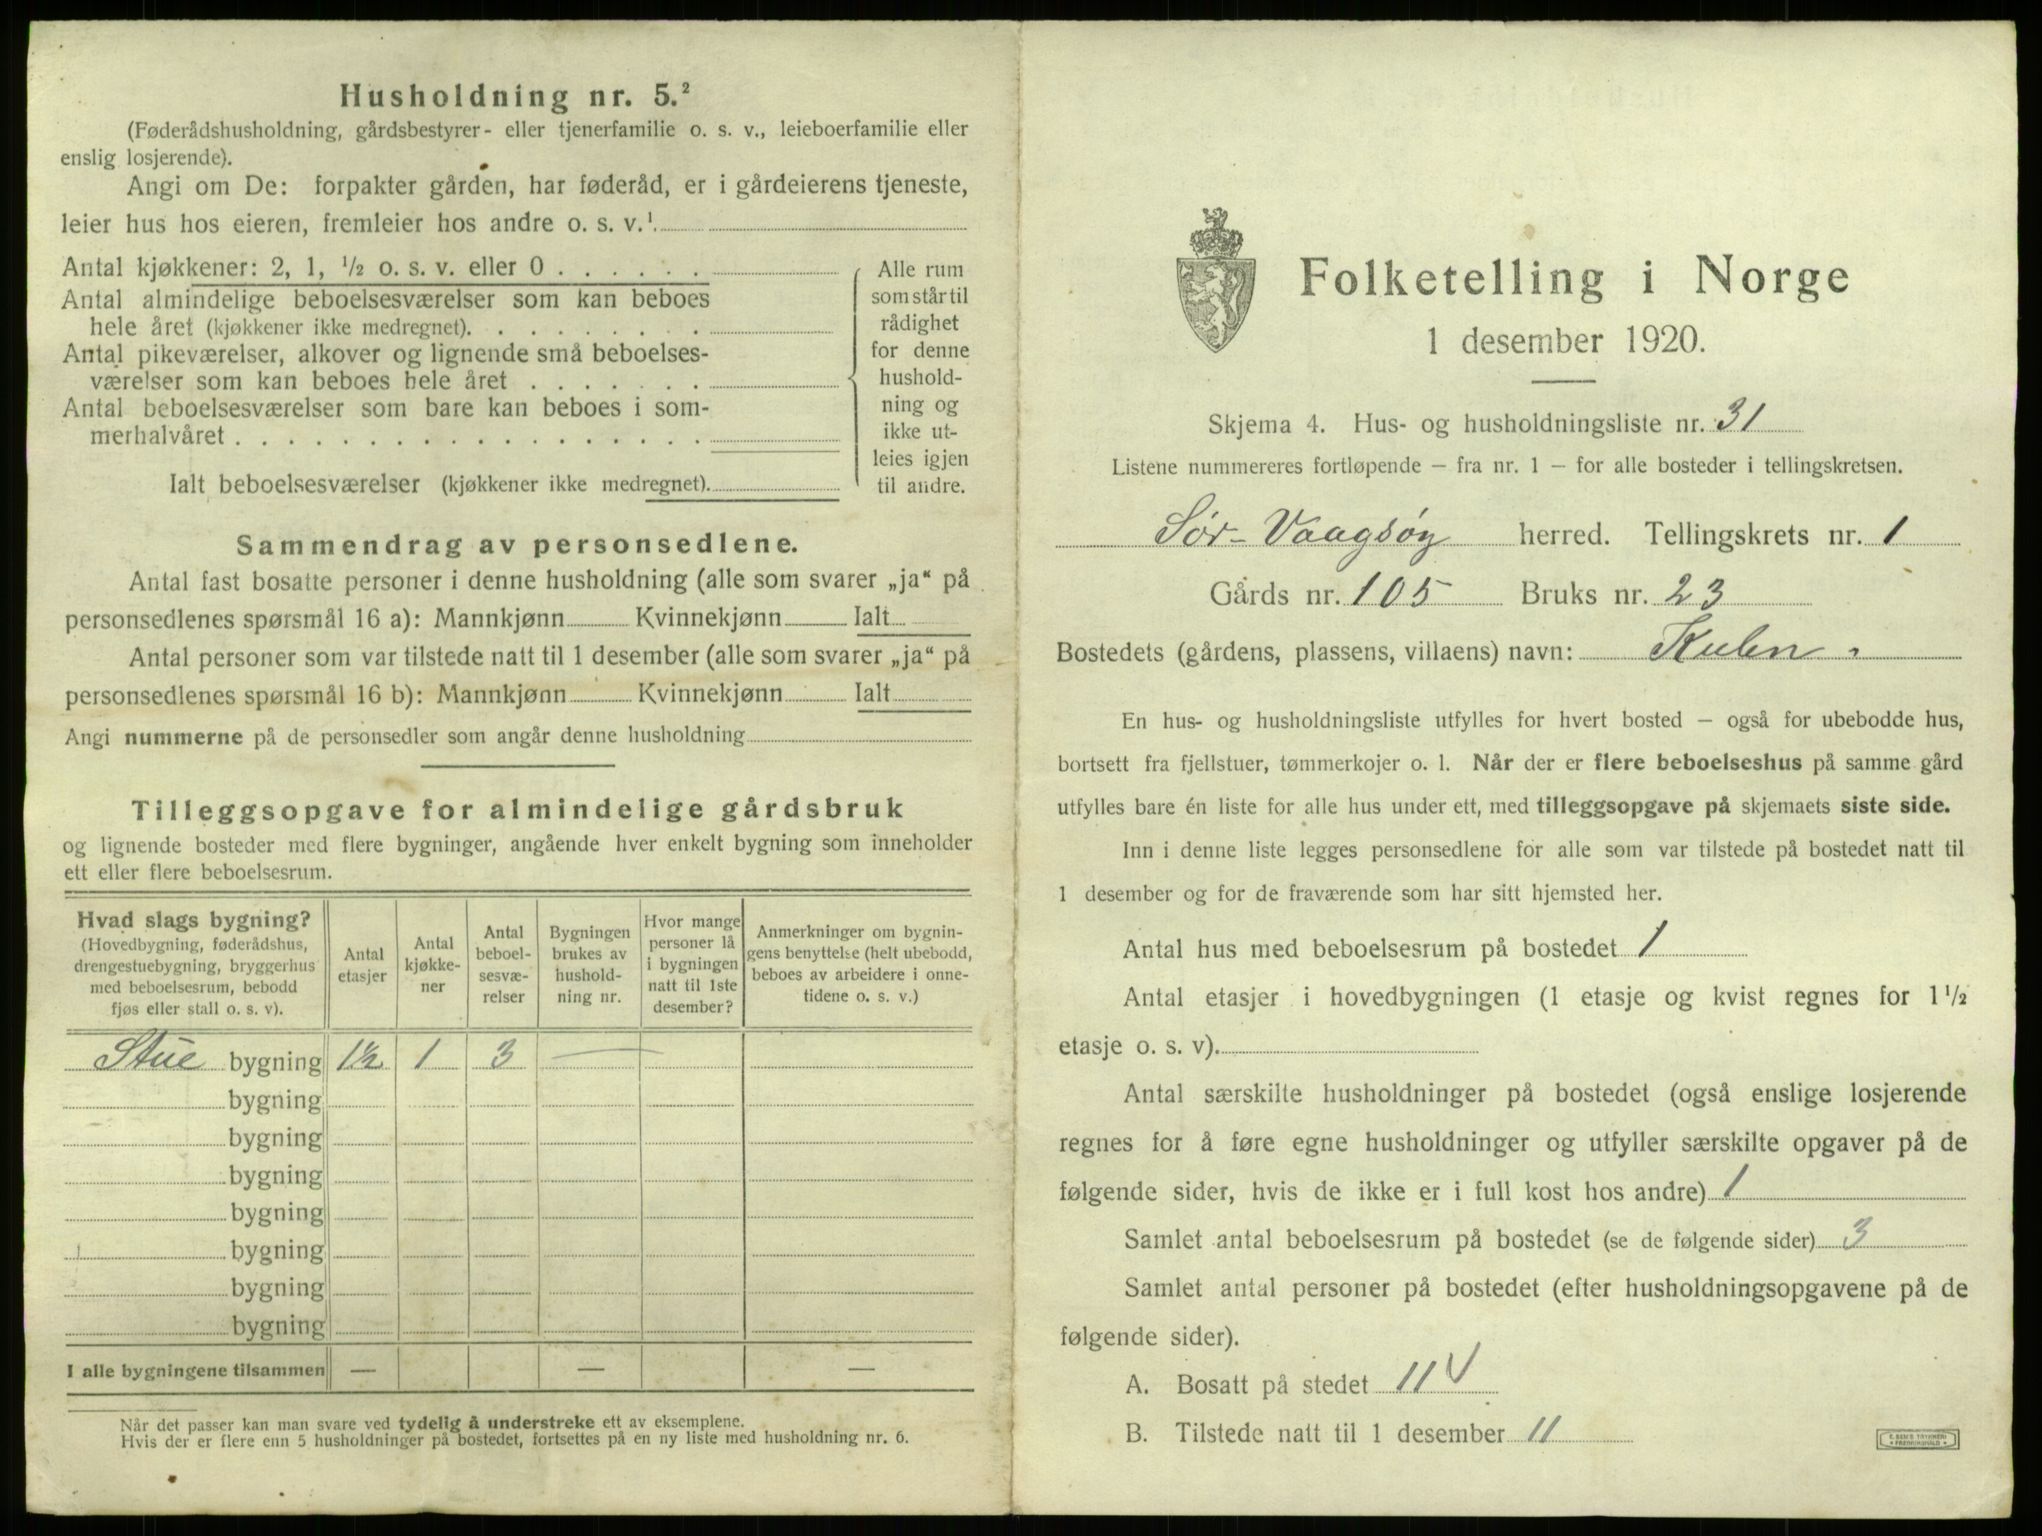 Husholdning nr. 5.²
(Føderådshusholdning, gårdsbestyrer- eller tjenerfamilie o. s. v., leieboerfamilie eller
enslig losjerende).
Angi om De: forpakter gården, har føderåd, er i gårdeierens tjeneste,
leier hus hos eieren, fremleier hos andre o. s. v.¹
Antal kjøkkener: 2, 1, ½ o. s. v. eller 0 . . . . . .
Antal almindelige beboelsesværelser som kan beboes
hele året (kjøkkener ikke medregnet). . . . . . . . .
Antal pikeværelser, alkover og lignende små beboelses-
værelser som kan beboes hele året . . . . . . .
Antal beboelsesværelser som bare kan beboes i som-
merhalvåret . . . . . . . . . . . . . . . . . .
Ialt beboelsesværelser (kjøkkener ikke medregnet).
Alle rum
som står til
rådighet
for denne
hushold-
ning og
ikke ut-
leies igjen
til andre.
Sammendrag av personsedlene.
Antal fast bosatte personer i denne husholdning (alle som svarer „ja“ på
personsedlenes spørsmål 16 a): Mannkjønn Kvinnekjønn Ialt
Antal personer som var tilstede natt til 1 desember (alle som svarer „ja“ på
personsedlenes spørsmål 16 b): Mannkjønn Kvinnekjønn Ialt
Angi nummerne på de personsedler som angår denne husholdning
Tilleggsopgave for almindelige gårdsbruk
og lignende bosteder med flere bygninger, angående hver enkelt bygning som inneholder
ett eller flere beboelsesrum.
Hvad slags bygning?
(Hovedbygning, føderådshus,
drengestuebygning, bryggerhus
med beboelsesrum, bebodd
fjøs eller stall o. s. v).
Antal
etasjer
Antal
kjøkke-
ner
Antal
beboel-
sesvæ-
relser
Bygningen
brukes av
hushold-
ning nr.
Hvor mange
personer lå
i bygningen
natt til 1ste
desember?
Anmerkninger om bygnin-
gens benyttelse (helt ubebodd,
beboes av arbeidere i onne-
tidene o. s. v.)
Stue bygning 1½ 1 3 —
bygning
bygning
bygning
bygning
bygning
bygning
bygning
I alle bygningene tilsammen — — —
Når det passer kan man svare ved tydelig å understreke ett av eksemplene.
Hvis der er flere enn 5 husholdninger på bostedet, fortsettes på en ny liste med husholdning nr. 6.
Folketelling i Norge
1 desember 1920.
Skjema 4. Hus- og husholdningsliste nr. 31
Listene nummereres fortløpende – fra nr. 1 – for alle bosteder i tellingskretsen.
Sør-Vaagsøy herred. Tellingskrets nr. 1
Gårds nr. 105 Bruks nr. 23
Bostedets (gårdens, plassens, villaens) navn: Kulen
En hus- og husholdningsliste utfylles for hvert bosted – også for ubebodde hus,
bortsett fra fjellstuer, tømmerkojer o. l. Når der er flere beboelseshus på samme gård
utfylles bare én liste for alle hus under ett, med tilleggsopgave på skjemaets siste side.
Inn i denne liste legges personsedlene for alle som var tilstede på bostedet natt til
1 desember og for de fraværende som har sitt hjemsted her.
Antal hus med beboelsesrum på bostedet 1
Antal etasjer i hovedbygningen (1 etasje og kvist regnes for 1 ½
etasje o. s. v).
Antal særskilte husholdninger på bostedet (også enslige losjerende
regnes for å føre egne husholdninger og utfyller særskilte opgaver på de
følgende sider, hvis de ikke er i full kost hos andre) 1
Samlet antal beboelsesrum på bostedet (se de følgende sider) 3
Samlet antal personer på bostedet (efter husholdningsopgavene på de
følgende sider).
A. Bosatt på stedet 11 V
B. Tilstede natt til 1 desember 11